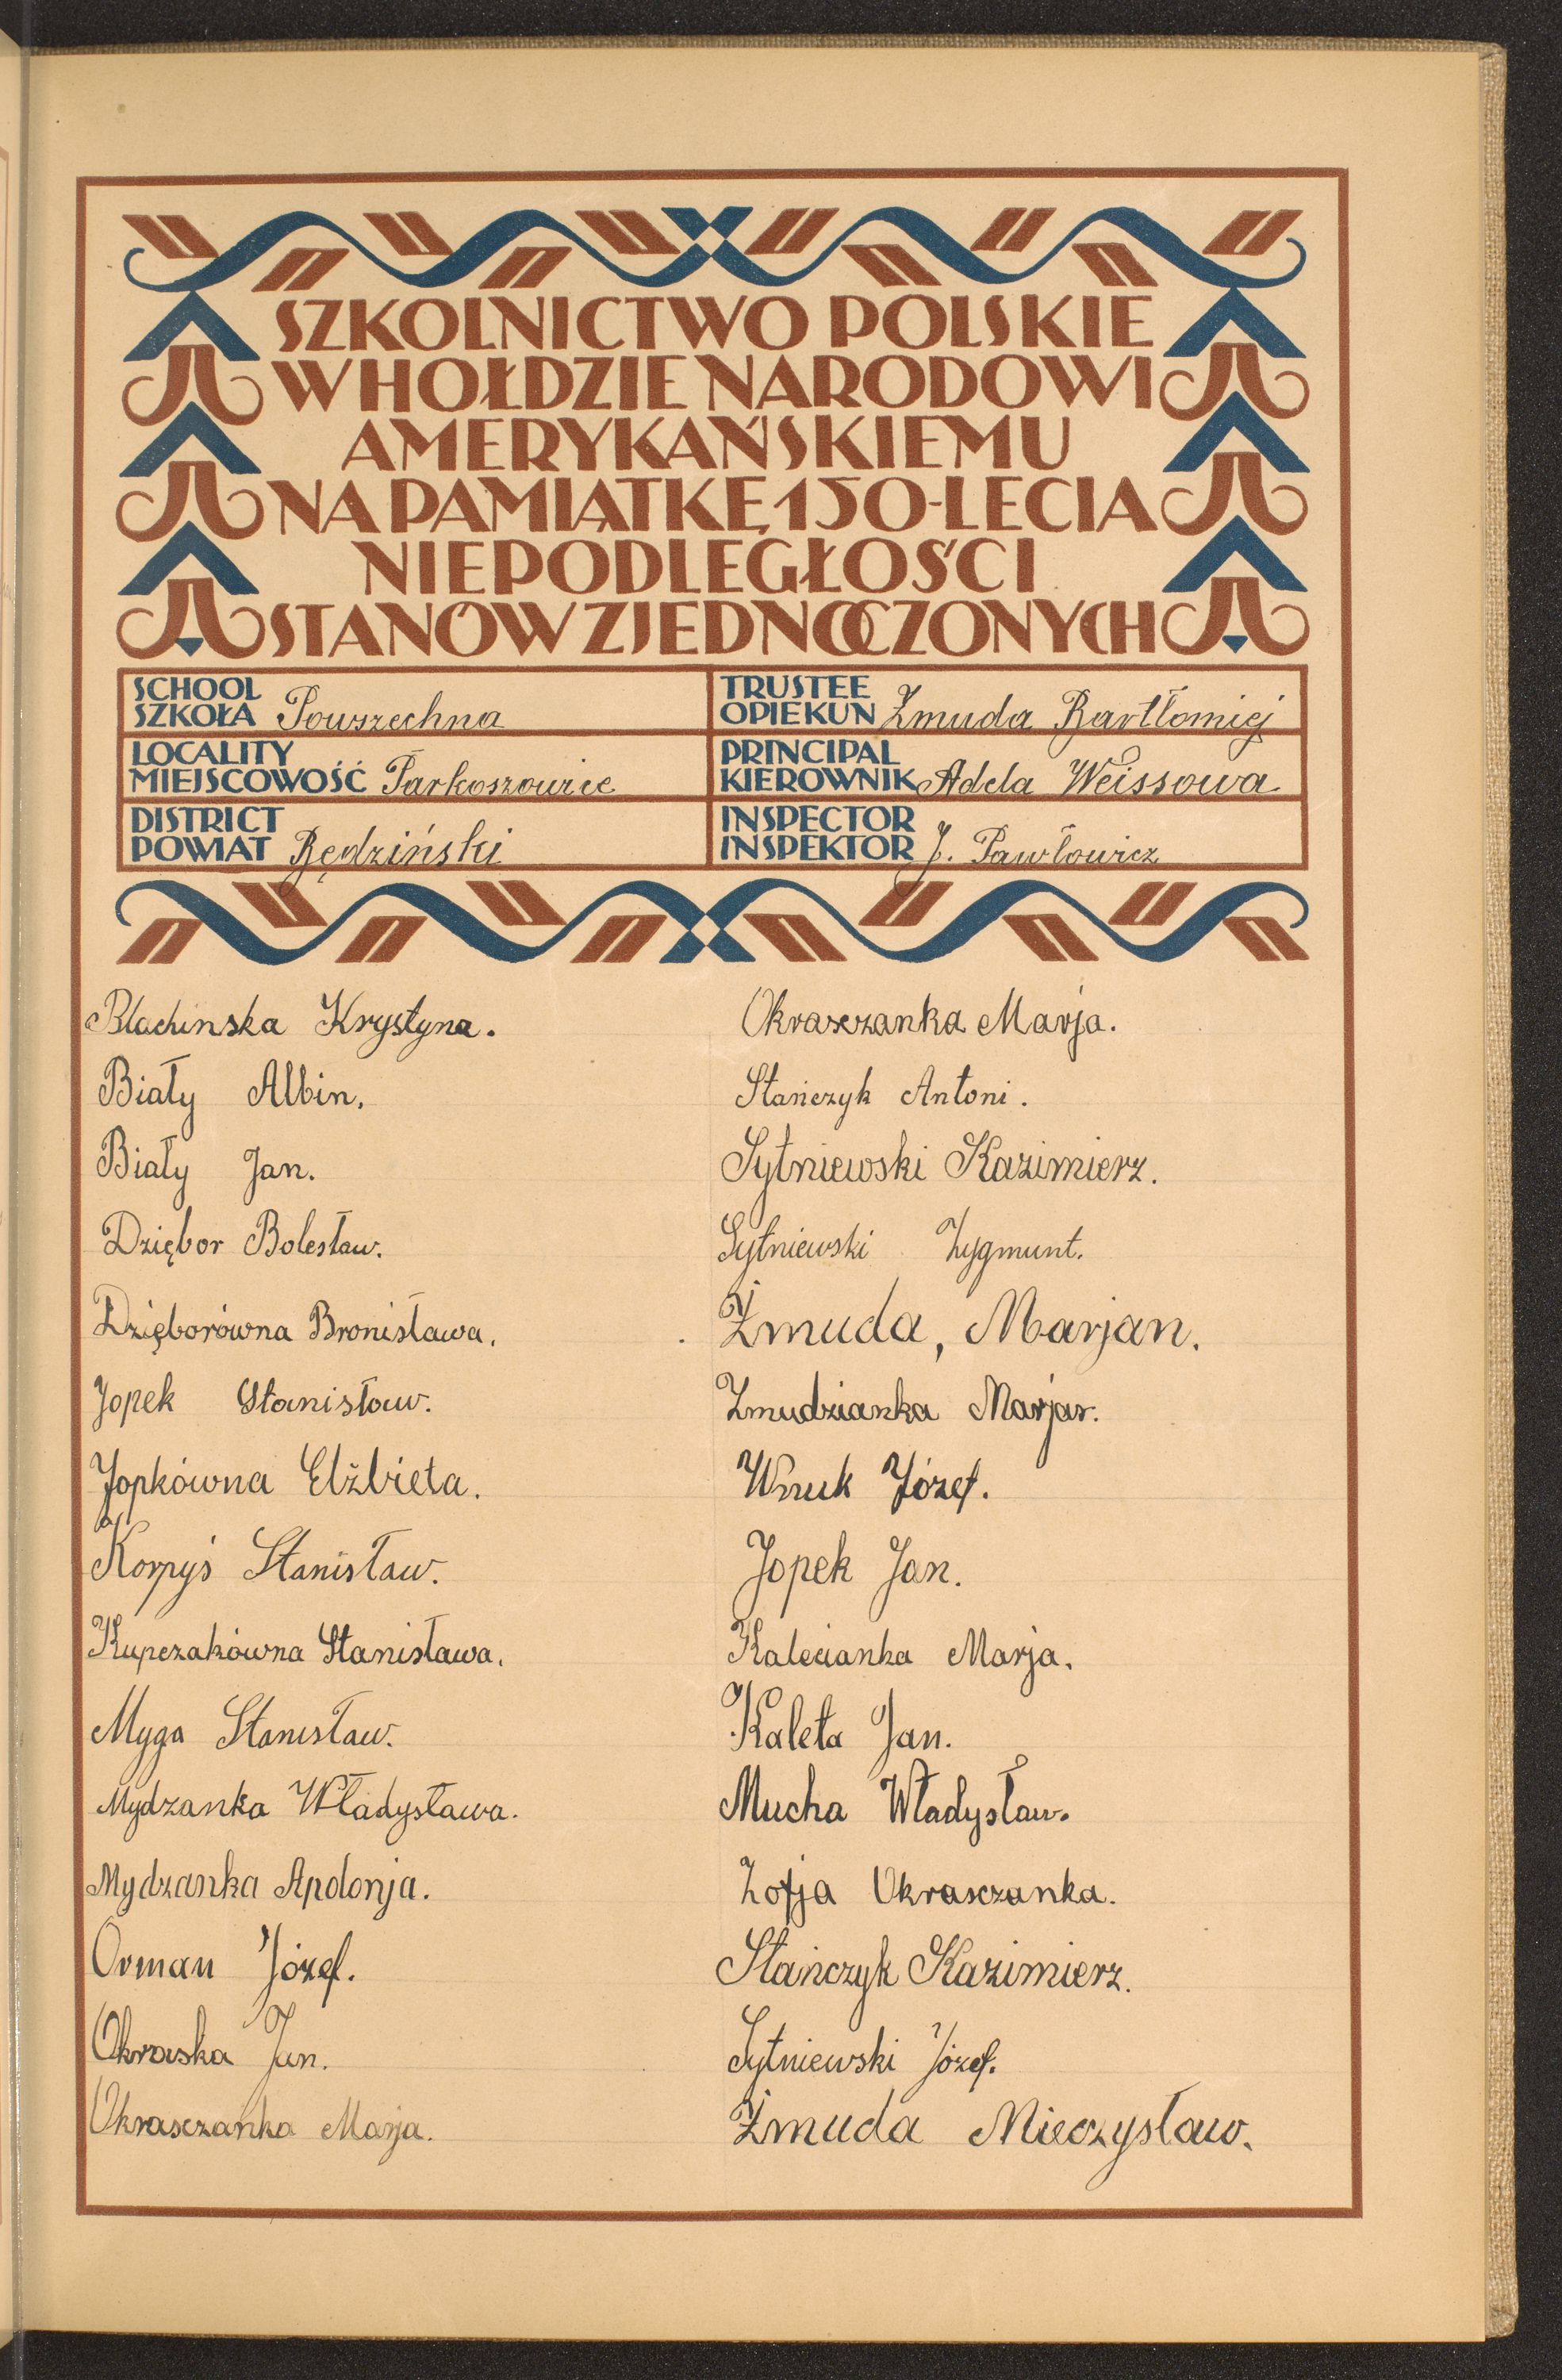 SZKOLNICTWO POLSKIE
W HOŁDZIE NARODOWI
AMERYKAŃSKIEMU
NA PAMIĄTKĘ 150-LECIA
NIEPODLEGŁOŚCI
STANÓW ZJEDNOCZONYCH
SCHOOL
SZKOŁA Powszechna
LOCALITY
MIEJSCOWOŚĆ Parkoszowice
DISTRICT
POWIAT Będziński
TRUSTEE
OPIEKUN Żmuda Bartłomiej
PRINCIPAL
KIEROWNIK Adela Weissowa
INSPECTOR
INSPEKTOR J. Pawłowicz
Blachinska Krystyna.
Biały Albin.
Biały Jan.
Dziębor Bolesław.
Dzięborówna Bronisława.
Jopek Stanisław.
Jopkówna Elżbieta.
Korpyś Stanisław.
Kupczakówna Stanisława.
Myga Stanisław.
Mydzanka Władysława.
Mydzanka Apolonja.
Orman Józef.
Okraska Jan.
Okrasczanka Marja.
Okrasczanka Marja.
Stańczyk Antoni.
Sytniewski Kazimierz.
Sytniewski Zygmunt.
Żmuda, Marjan.
Żmudzianka Marjar.
Wnuk Józef.
Jopek Jan.
Kalecianka Marja.
Kaleta Jan.
Mucha Władysław.
Zofja Okrasczanka.
Stańczyk Kazimierz.
Sytniewski Józef.
Żmuda Mieczysław.